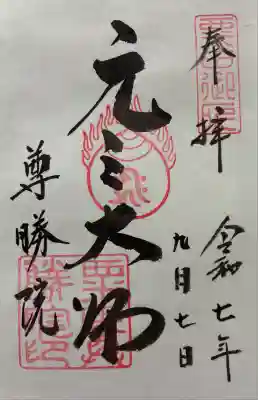 奉拝
令和七年
九月七日
元三大師
尊勝院